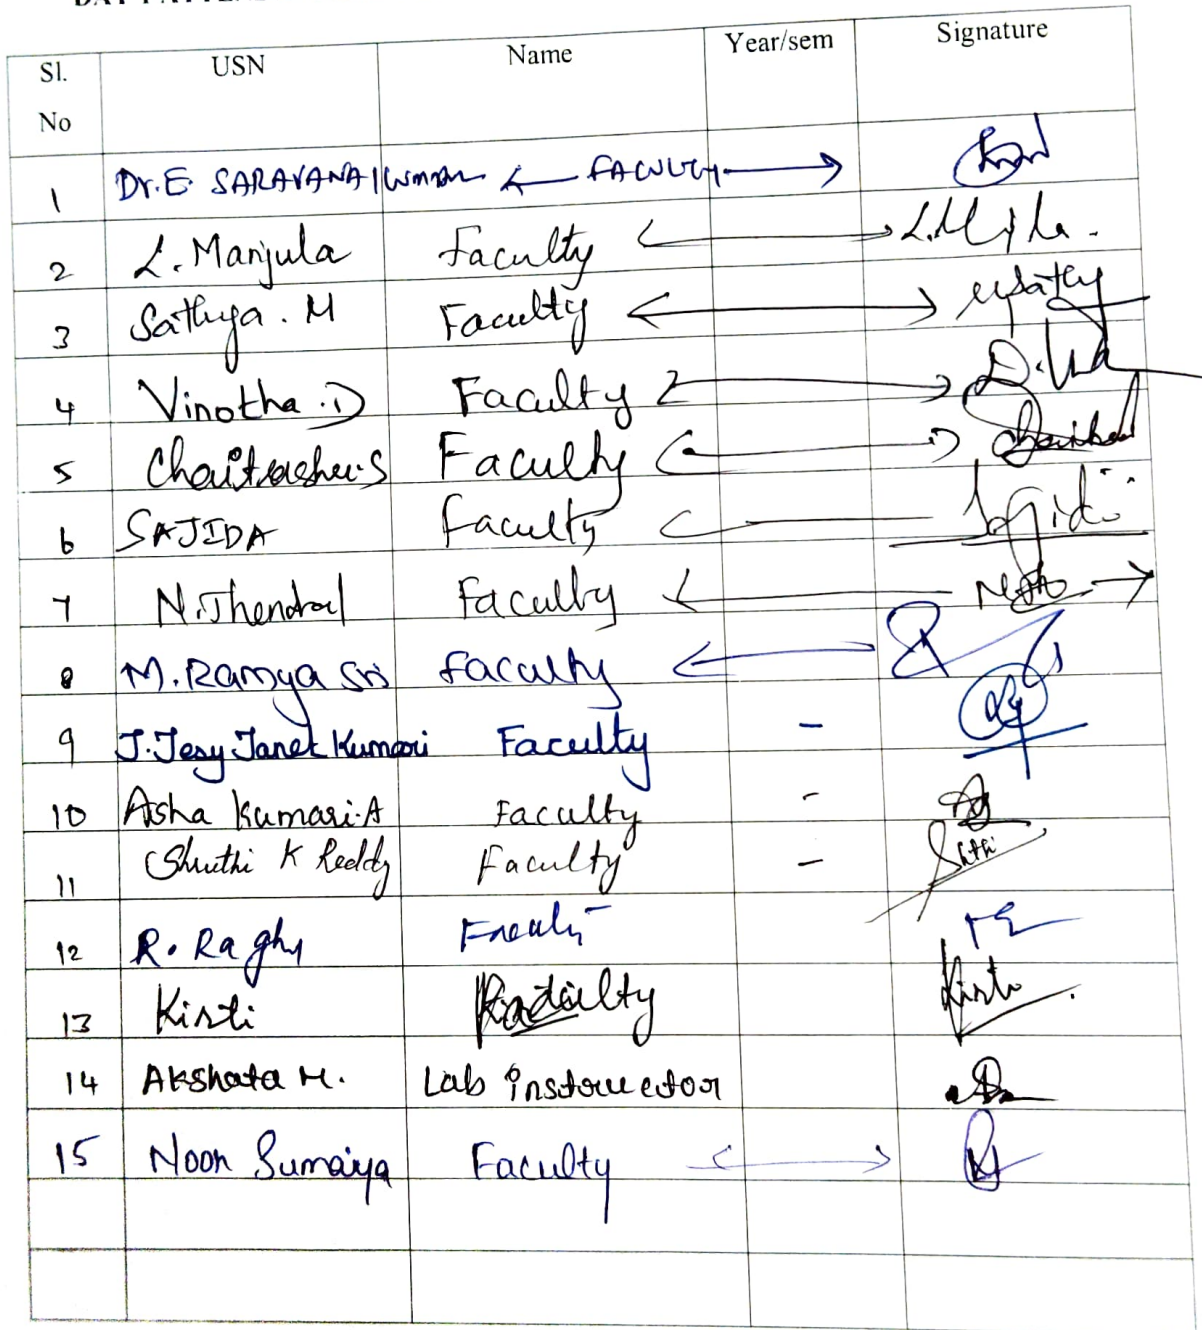 Sl. No USN Name Year/sem Signature
1 Dr. E. SARAVANA Kumar FACULTY
2 L. Manjula Faculty
3 Sathya. M Faculty
4 Vinotha. D Faculty
5 Chaitrashree S Faculty
6 SAJIDA Faculty
7 N. Thendral Faculty
8 M. Ramya Sri Faculty
9 J. Jesy Janet Kumari Faculty -
10 Asha Kumari. A Faculty -
11 Shruthi K Reddy Faculty -
12 R. Raghu Faculty
13 Kirti Faculty Kirti
14 Akshata M. Lab instructor
15 Noor Sumaiya Faculty